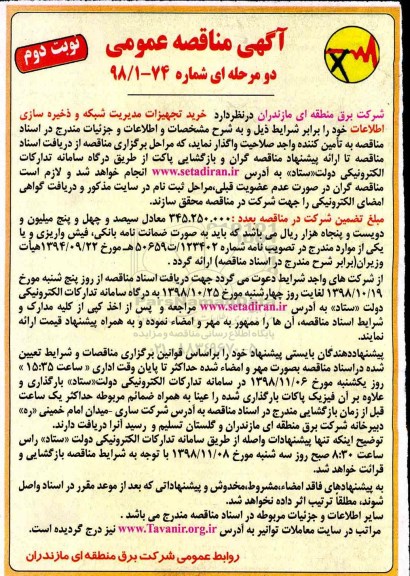 نوبت دوم
آگهی مناقصه عمومی
دو مرحله ای شماره ۷۴-۹۸/۱
شرکت برق منطقه ای مازندران درنظردارد خرید تجهیزات مدیریت شبکه و ذخیره سازی
اطلاعات خود را برابر شرایط ذیل و به شرح مشخصات و اطلاعات و جزئیات مندرج در اسناد
مناقصه به تأمین کننده واجد صلاحیت واگذار نماید، که مراحل برگزاری مناقصه از دریافت اسناد
مناقصه تا ارائه پیشنهاد مناقصه گران و بازگشایی پاکت از طریق درگاه سامانه تدارکات
الکترونیکی دولت«ستاد» به آدرس www.setadiran.ir انجام خواهد شد و لازم است
مناقصه گران در صورت عدم عضویت قبلی،مراحل ثبت نام در سایت مذکور و دریافت گواهی
امضای الکترونیکی را جهت شرکت در مناقصه محقق سازند.
مبلغ تضمین شرکت در مناقصه بعدد :۳۴۵.۲۵۰.۰۰۰ معادل سیصد و چهل و پنج میلیون و
دویست و پنجاه هزار ریال می باشد که باید به صورت ضمانت نامه بانکی، فیش واریزی و یا
یکی از موارد مندرج در تصویب نامه شماره ۱۲۳۴۰۲/ت۵۰۶۵۹هـ مورخ ۱۳۹۴/۰۹/۲۲هیأت
وزیران(برابر شرح مندرج در اسناد مناقصه) ارائه گردد .
از شرکت های واجد شرایط دعوت می گردد جهت دریافت اسناد مناقصه از روز پنج شنبه مورخ
۱۳۹۸/۱۰/۱۹ لغایت روز چهارشنبه مورخ ۱۳۹۸/۱۰/۲۵ به درگاه سامانه تدارکات الکترونیکی
دولت «ستاد» به آدرس www.setadiran.ir مراجعه و پس از اخذ کپی از کلیه مدارک و
شرایط اسناد مناقصه، آن ها را ممهور به مهر و امضاء نموده و به همراه پیشنهاد قیمت ارائه
نمایند.
پیشنهاددهندگان بایستی پیشنهاد خود را براساس قوانین برگزاری مناقصات و شرایط تعیین
شده دراسناد مناقصه بصورت مهر و امضاء شده حداکثر تا پایان وقت اداری « ساعت ۱۵:۳۵ »
روز یکشنبه مورخ ۱۳۹۸/۱۱/۰۶ در سامانه تدارکات الکترونیکی دولت«ستاد» بارگذاری و
علاوه بر آن فیزیک پاکات بارگذاری شده را عینا به همراه ضمائم مربوطه حداکثر یک ساعت
قبل از زمان بازگشایی مندرج در اسناد مناقصه به آدرس شرکت ساری -میدان امام خمینی «ره»
دبیرخانه شرکت برق منطقه ای مازندران و گلستان تسلیم و رسید آنرا دریافت دارند.
توضیح اینکه تنها پیشنهادات واصله از طریق سامانه تدارکات الکترونیکی دولت«ستاد» راس
ساعت ۸:۳۰ صبح روز سه شنبه مورخ ۱۳۹۸/۱۱/۰۸ با توجه به شرایط مناقصه بازگشایی و
قرائت خواهد شد.
به پیشنهادهای فاقد امضاء،مشروط،مخدوش و پیشنهاداتی که بعد از موعد مقرر در اسناد واصل
شوند، مطلقاً ترتیب اثر داده نخواهد شد.
سایر اطلاعات و جزئیات مربوطه در اسناد مناقصه مندرج می باشد .
مراتب در سایت معاملات توانیر به آدرس www.Tavanir.org.ir نیز درج گردیده است.
روابط عمومی شرکت برق منطقه ای مازندران